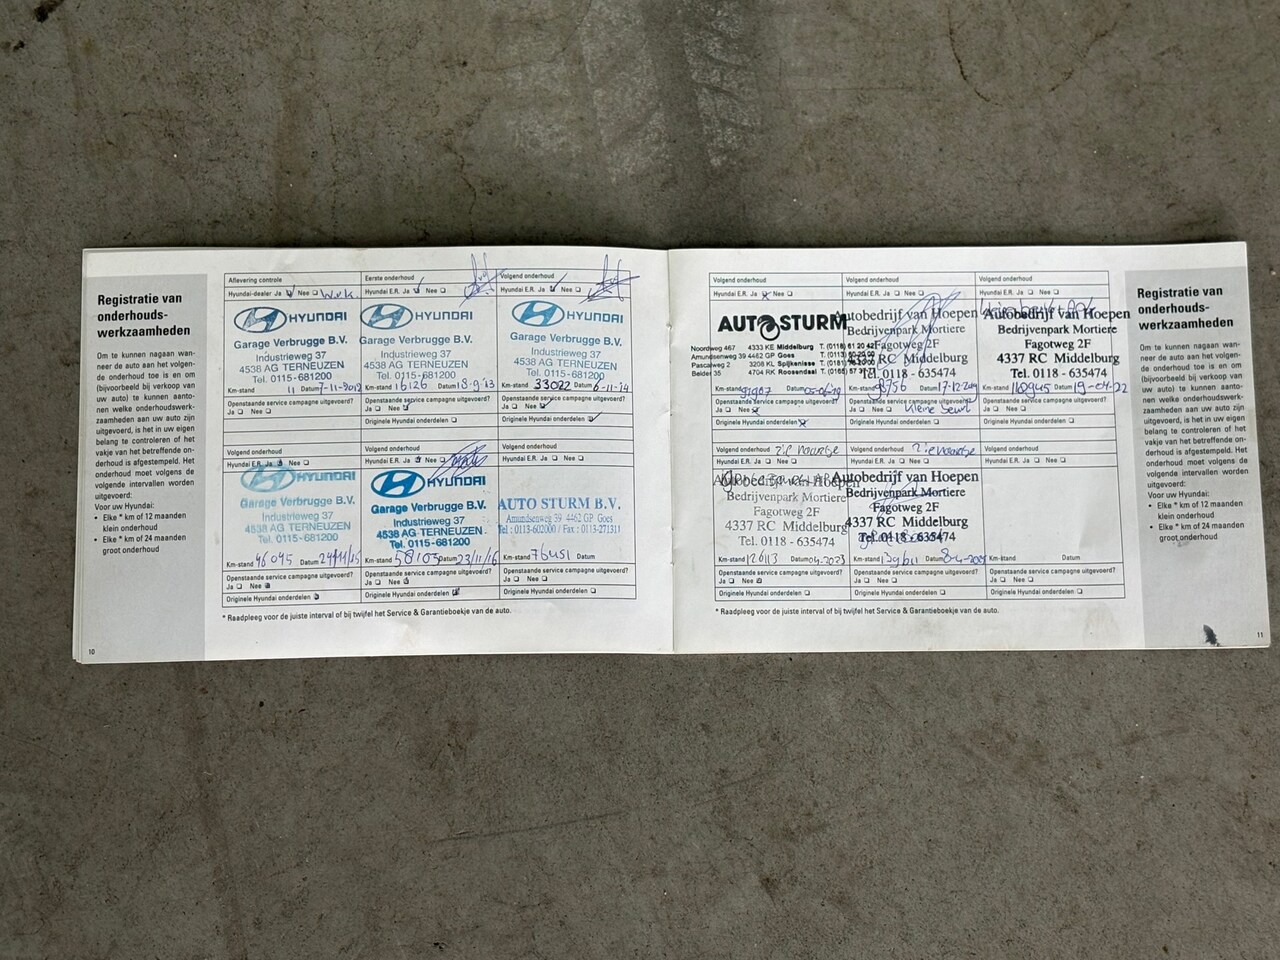 Registratie van
onderhouds-
werkzaamheden
Om te kunnen nagaan wan-
neer de auto aan het volgen-
de onderhoud toe is en om
(bijvoorbeeld bij verkoop van
uw auto) te kunnen aanto-
nen welke onderhoudswerk-
zaamheden aan uw auto zijn
uitgevoerd, is het in uw eigen
belang te controleren of het
vakje van de betreffende on-
derhoud is afgestempeld. Het
onderhoud moet volgens de
volgende intervallen worden
uitgevoerd:
Voor uw Hyundai:
• Elke * km of 12 maanden
klein onderhoud
• Elke * km of 24 maanden
groot onderhoud
10
Aflevering controle
Hyundai-dealer Ja Nee
HYUNDAI
Garage Verbrugge B.V.
Industrieweg 37
4538 AG TERNEUZEN
Tel. 0115-681200
Km-stand 11 Datum 7-11-2012
Openstaande service campagne uitgevoerd?
Ja Nee
Eerste onderhoud
Hyundai E.R. Ja Nee
HYUNDAI
Garage Verbrugge B.V.
Industrieweg 37
4538 AG TERNEUZEN
Tel. 0115-681200
Km-stand 16126 Datum 18-9-'13
Openstaande service campagne uitgevoerd?
Ja Nee
Originele Hyundai onderdelen
Volgend onderhoud
Hyundai E.R. Ja Nee
HYUNDAI
Garage Verbrugge B.V.
Industrieweg 37
4538 AG TERNEUZEN
Tel. 0115-681200
Km-stand 33022 Datum 6-11-'14
Openstaande service campagne uitgevoerd?
Ja Nee
Originele Hyundai onderdelen
Volgend onderhoud
Hyundai E.R. Ja Nee
HYUNDAI
Garage Verbrugge B.V.
Industrieweg 37
4538 AG TERNEUZEN
Tel. 0115-681200
Km-stand 46045 Datum 24/11/15
Openstaande service campagne uitgevoerd?
Ja Nee
Originele Hyundai onderdelen
Volgend onderhoud
Hyundai E.R. Ja Nee
HYUNDAI
Garage Verbrugge B.V.
Industrieweg 37
4538 AG TERNEUZEN
Tel. 0115-681200
Km-stand 58103 Datum 23/11/16
Openstaande service campagne uitgevoerd?
Ja Nee
Originele Hyundai onderdelen
Volgend onderhoud
Hyundai E.R. Ja Nee
AUTO STURM B.V.
Amundsenweg 39 4462 GP Goes
Tel : 0113-602000 / Fax : 0113-271311
Km-stand 76451 Datum
Openstaande service campagne uitgevoerd?
Ja Nee
Originele Hyundai onderdelen
* Raadpleeg voor de juiste interval of bij twijfel het Service & Garantieboekje van de auto.
Volgend onderhoud
Hyundai E.R. Ja Nee
AUTO STURM
Noordweg 467 4333 KE Middelburg
Amundsenweg 39 4462 GP Goes
Pascalweg 2 3208 KL Spijkenisse
Belder 35 4704 RK Roosendaal
Km-stand 91907 Datum
Openstaande service campagne uitgevoerd?
Ja Nee
Originele Hyundai onderdelen
Volgend onderhoud
Hyundai E.R. Ja Nee
Autobedrijf van Hoepen
Bedrijvenpark Mortiere
Fagotweg 2F
4337 RC Middelburg
Tel. 0118 - 635474
Km-stand 98756 Datum 17-12-
Openstaande service campagne uitgevoerd?
Ja Nee Kleine beurt
Originele Hyundai onderdelen
Volgend onderhoud
Hyundai E.R. Ja Nee
Autobedrijf van Hoepen
Bedrijvenpark Mortiere
Fagotweg 2F
4337 RC Middelburg
Tel. 0118 - 635474
Km-stand Datum 19-04-22
Openstaande service campagne uitgevoerd?
Ja Nee
Originele Hyundai onderdelen
Volgend onderhoud
Hyundai E.R. Ja Nee
Autobedrijf van Hoepen
Bedrijvenpark Mortiere
Fagotweg 2F
4337 RC Middelburg
Tel. 0118 - 635474
Km-stand 126113 Datum 04-2023
Openstaande service campagne uitgevoerd?
Ja Nee
Originele Hyundai onderdelen
Volgend onderhoud
Hyundai E.R. Ja Nee
Autobedrijf van Hoepen
Bedrijvenpark Mortiere
Fagotweg 2F
4337 RC Middelburg
Tel. 0118 - 635474
Km-stand 139611 Datum
Openstaande service campagne uitgevoerd?
Ja Nee
Originele Hyundai onderdelen
Volgend onderhoud
Hyundai E.R. Ja Nee
Km-stand Datum
Openstaande service campagne uitgevoerd?
Ja Nee
Originele Hyundai onderdelen
* Raadpleeg voor de juiste interval of bij twijfel het Service & Garantieboekje van de auto.
Registratie van
onderhouds-
werkzaamheden
Om te kunnen nagaan wan-
neer de auto aan het volgen-
de onderhoud toe is en om
(bijvoorbeeld bij verkoop van
uw auto) te kunnen aanto-
nen welke onderhoudswerk-
zaamheden aan uw auto zijn
uitgevoerd, is het in uw eigen
belang te controleren of het
vakje van de betreffende on-
derhoud is afgestempeld. Het
onderhoud moet volgens de
volgende intervallen worden
uitgevoerd:
Voor uw Hyundai:
• Elke * km of 12 maanden
klein onderhoud
• Elke * km of 24 maanden
groot onderhoud
11